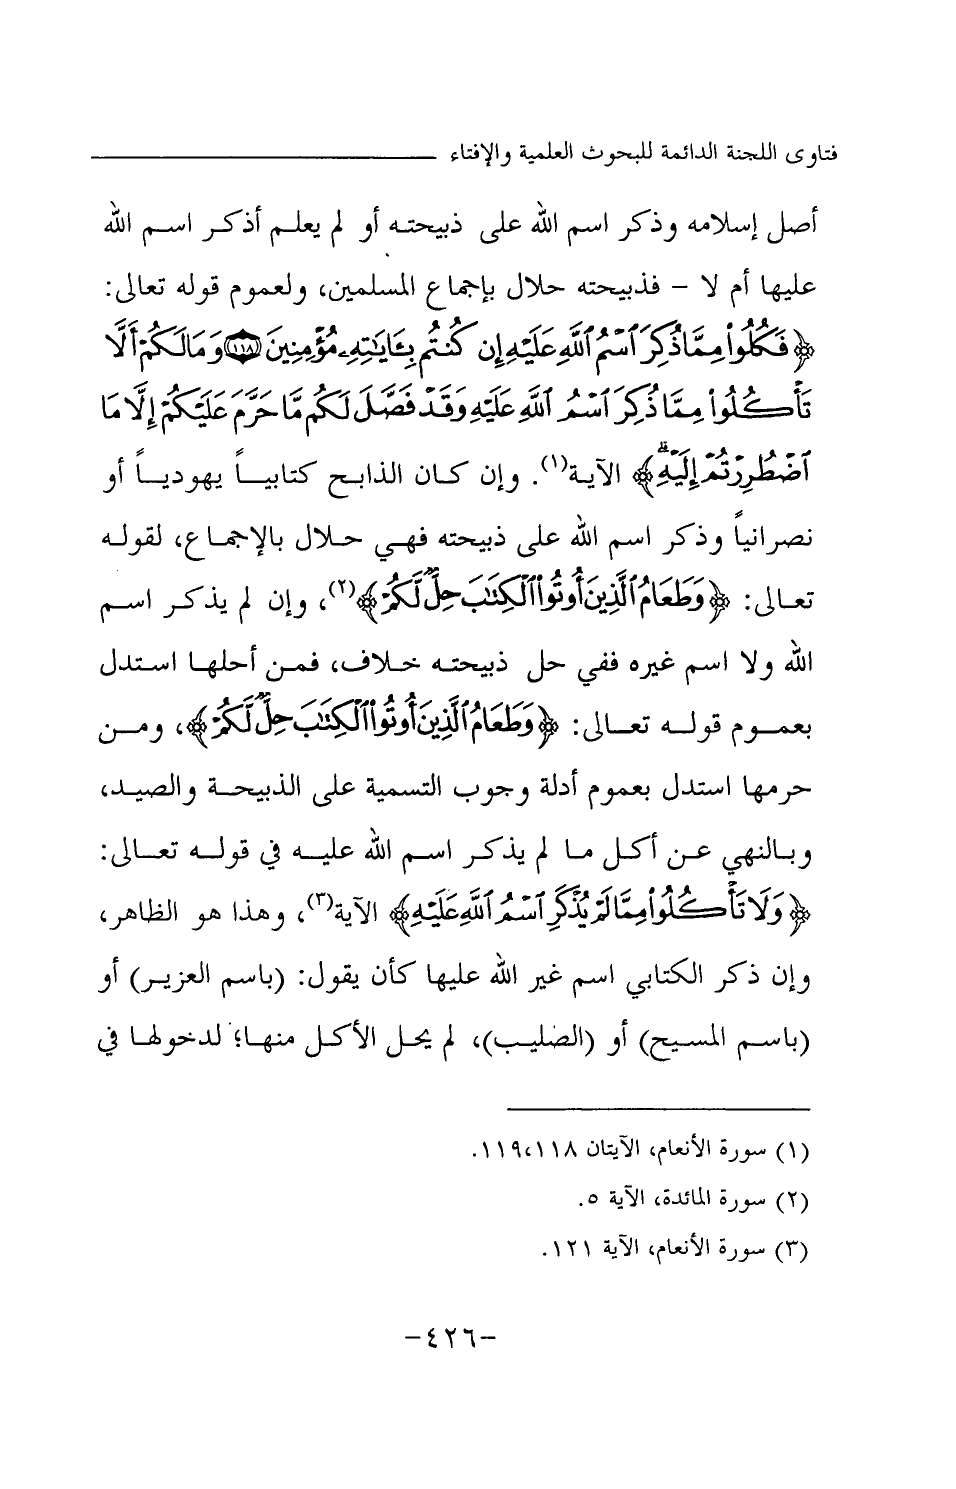 فتاوى اللجنة الدائمة للبحوث العلمية والإفتاء
أصل إسلامه وذكر اسم الله على ذبيحته أو لم يعلم أذكر اسم الله
عليها أم لا - فذبيحته حلال بإجماع المسلمين، ولعموم قوله تعالى:
﴿فَكُلُوا۟ مِمَّا ذُكِرَ ٱسْمُ ٱللَّهِ عَلَيْهِ إِن كُنتُم بِـَٔايَـٰتِهِۦ مُؤْمِنِينَ ١١٨ وَمَا لَكُمْ أَلَّا
تَأْكُلُوا۟ مِمَّا ذُكِرَ ٱسْمُ ٱللَّهِ عَلَيْهِ وَقَدْ فَصَّلَ لَكُم مَّا حَرَّمَ عَلَيْكُمْ إِلَّا مَا
ٱضْطُرِرْتُمْ إِلَيْهِ ۗ﴾ الآية(١). وإن كان الذابح كتابياً يهودياً أو
نصرانياً وذكر اسم الله على ذبيحته فهي حلال بالإجماع، لقوله
تعالى: ﴿وَطَعَامُ ٱلَّذِينَ أُوتُوا۟ ٱلْكِتَـٰبَ حِلٌّ لَّكُمْ﴾(٢)، وإن لم يذكر اسم
الله ولا اسم غيره ففي حل ذبيحته خلاف، فمن أحلها استدل
بعموم قوله تعالى: ﴿وَطَعَامُ ٱلَّذِينَ أُوتُوا۟ ٱلْكِتَـٰبَ حِلٌّ لَّكُمْ﴾، ومن
حرمها استدل بعموم أدلة وجوب التسمية على الذبيحة والصيد،
وبالنهي عن أكل ما لم يذكر اسم الله عليه في قوله تعالى:
﴿وَلَا تَأْكُلُوا۟ مِمَّا لَمْ يُذْكَرِ ٱسْمُ ٱللَّهِ عَلَيْهِ﴾ الآية(٣)، وهذا هو الظاهر،
وإن ذكر الكتابي اسم غير الله عليها كأن يقول: (باسم العزير) أو
(باسم المسيح) أو (الصليب)، لم يحل الأكل منها؛ لدخولها في
(١) سورة الأنعام، الآيتان ١١٨،١١٩.
(٢) سورة المائدة، الآية ٥.
(٣) سورة الأنعام، الآية ١٢١.
-٤٢٦-